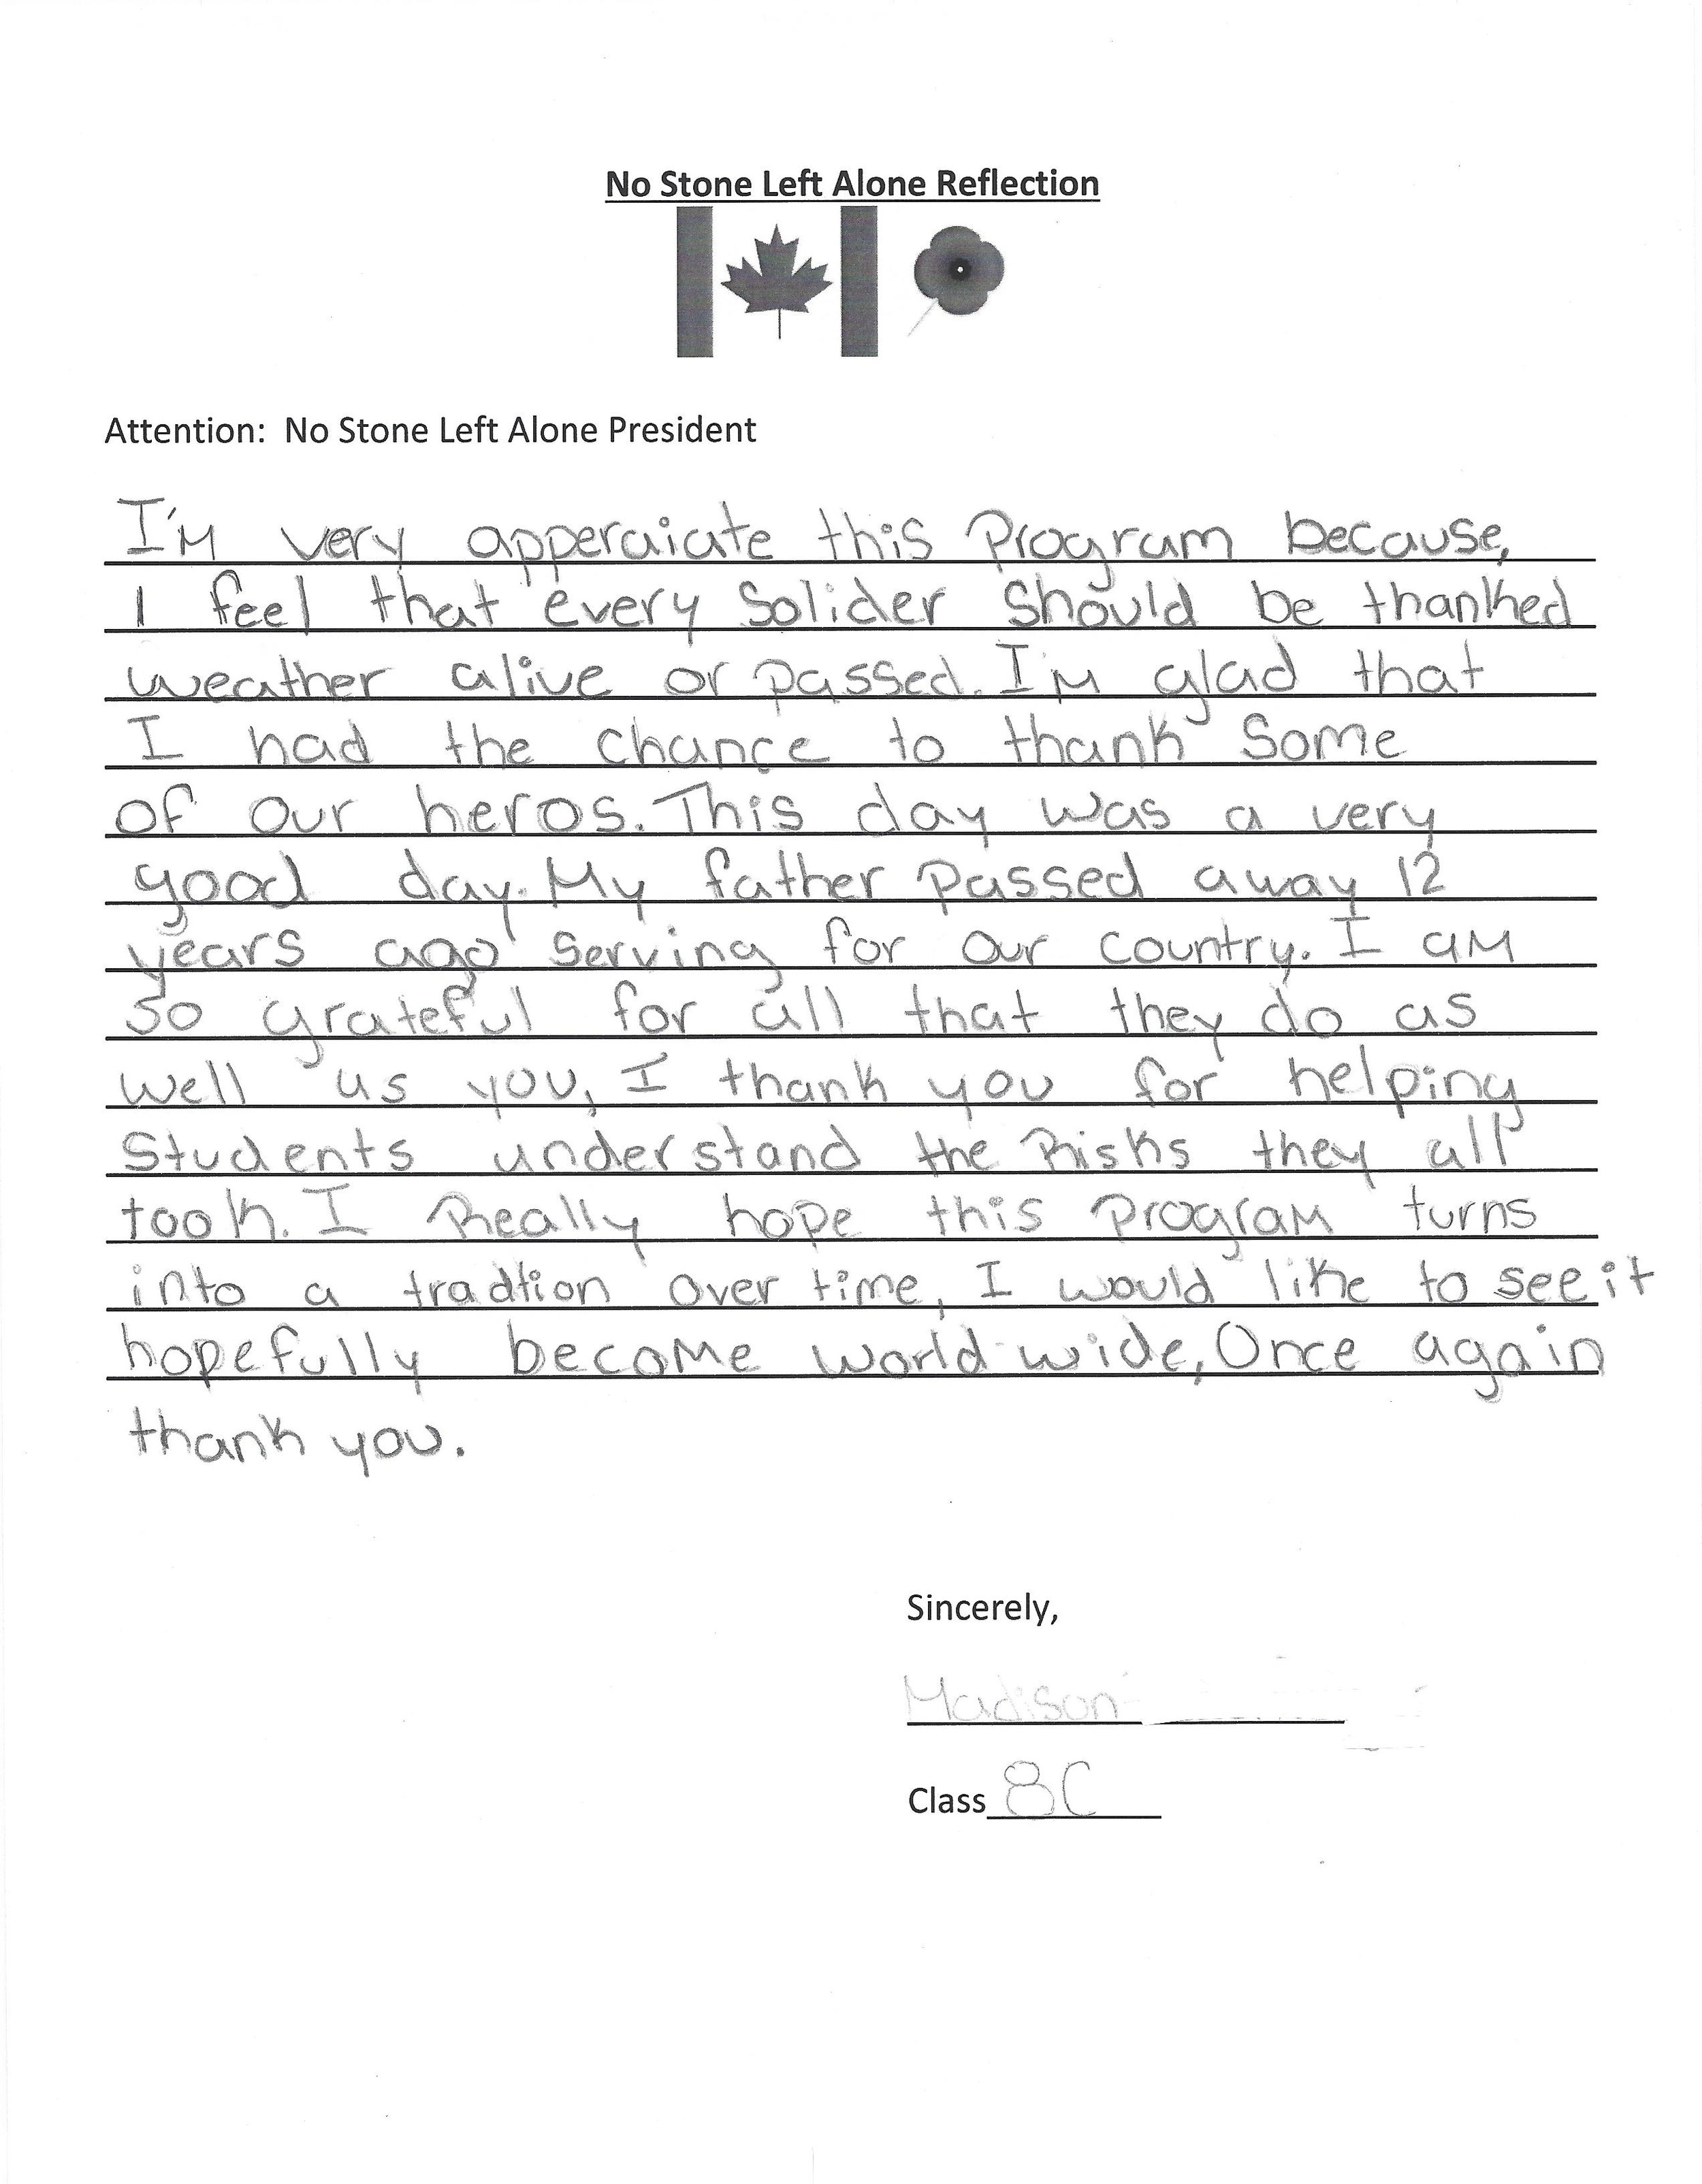 No Stone Left Alone Reflection
Attention: No Stone Left Alone President
I'm very apperaiciate this Program because,
I feel that every Solider Should be thanked
weather alive or passed. I'm glad that
I had the chance to thank Some
of our heros. This day was a very
good day. My father passed away 12
years ago serving for our country. I am
so grateful for all that they do as
well us you, I thank you for helping
Students understand the Risks they all
took. I Really hope this program turns
into a tradtion over time, I would like to see it
hopefully become world wide, Once again
thank you.
Sincerely,
Madison
Class 8C